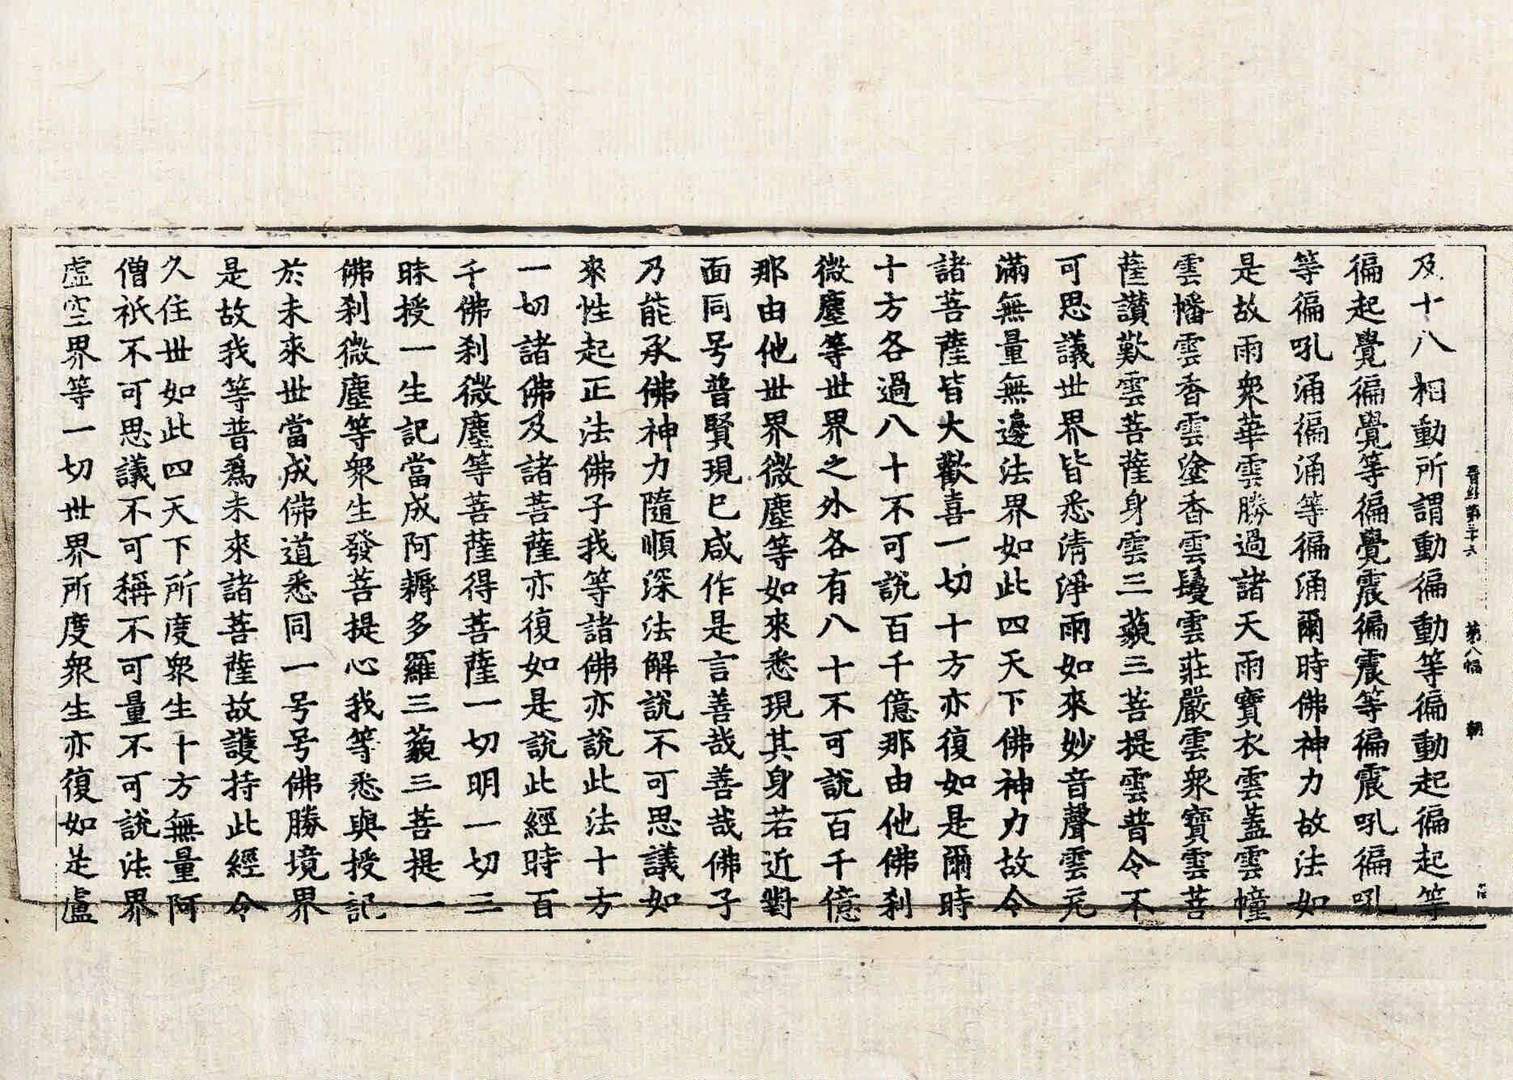 晉經第三十六 第八幅 朝
及十八相動所謂動徧動等徧動起徧起等
徧起覺徧覺等徧覺震徧震等徧震吼徧吼
等徧吼涌徧涌等徧涌爾時佛神力故法如
是故雨衆華雲勝過諸天雨寶衣雲蓋雲幢
雲幡雲香雲塗香雲鬘雲莊嚴雲衆寶雲菩
薩讃歎雲菩薩身雲三藐三菩提雲普令不
可思議世界皆悉清淨雨如來妙音聲雲充
滿無量無邊法界如此四天下佛神力故令
諸菩薩皆大歡喜一切十方亦復如是爾時
十方各過八十不可說百千億那由他佛刹
微塵等世界之外各有八十不可說百千億
那由他世界微塵等如來悉現其身若近對
面同号普賢現已咸作是言善哉善哉佛子
乃能承佛神力隨順深法解說不可思議如
來性起正法佛子我等諸佛亦說此法十方
一切諸佛及諸菩薩亦復如是說此經時百
千佛刹微塵等菩薩得菩薩一切明一切三
昧授一生記當成阿耨多羅三藐三菩提一
佛刹微塵等衆生發菩提心我等悉與授記
於未來世當成佛道悉同一号号佛勝境界
是故我等普爲未來諸菩薩故護持此經令
久住世如此四天下所度衆生十方無量阿
僧祇不可思議不可稱不可量不可說法界
虛空界等一切世界所度衆生亦復如是盧